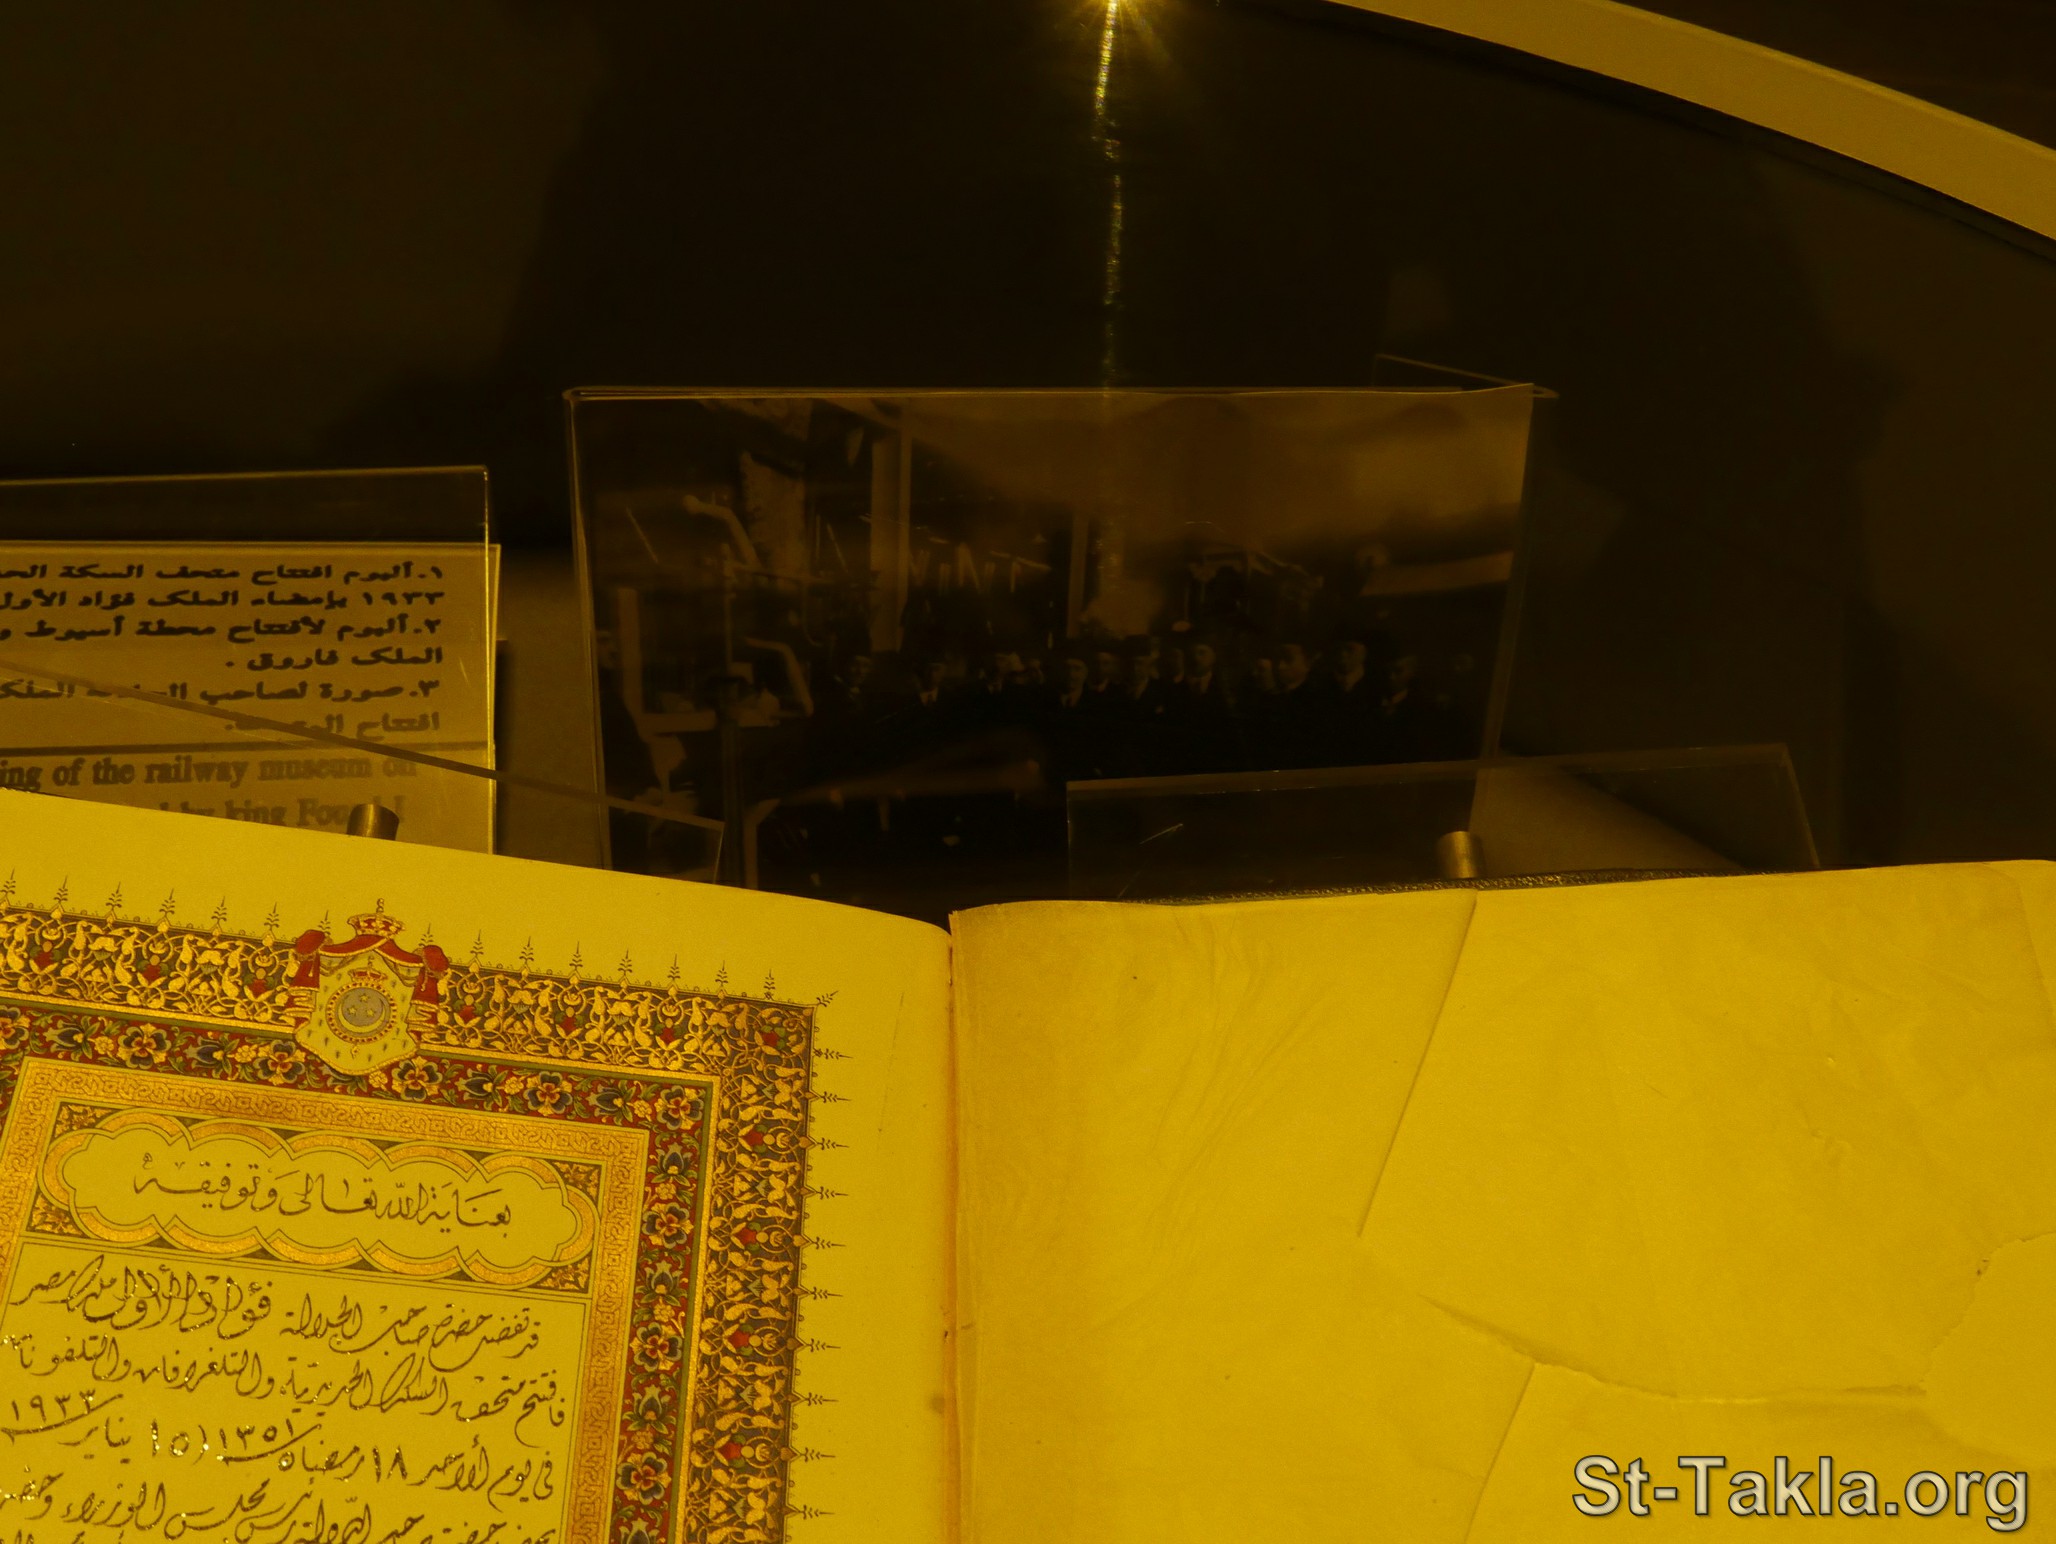 ١. ألبوم افتتاح متحف السكة الحد
١٩٣٣ بإمضاء الملك فؤاد الأول
٢. ألبوم لأفتتاح محطة أسيوط و
الملك فاروق .
٣. صورة لصاحب الجلالة الملك
افتتاح المتحف.
ing of the railway museum on
by king Fouad I
بعناية الله تعالى وتوفيقه
قد تفضل حضرة صاحب الجلالة فؤاد الأول ملك مصر
فافتتح متحف السكك الحديدية والتلغرافات والتلفونات
في يوم الأحد ١٨ رمضان ١٣٥١ (١٥ يناير ١٩٣٣
مجلس الوزراء
St-Takla.org